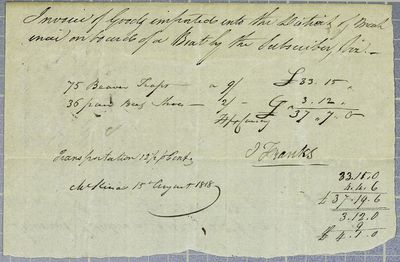 Invoice of Goods imported into the District of Mack
inac on boards of a Boat by the Subscriber, Viz.—
75 Beaver Traps — a 9/ £33.15„
36 pair Shoes — 2/— 3.12„
37„7„0
Transportation 12½ p Cent
J Franks
McKinac 15th August 1818
33.15.0
4.4.6
£37.19.6
3.12.0
9
£4.1.0